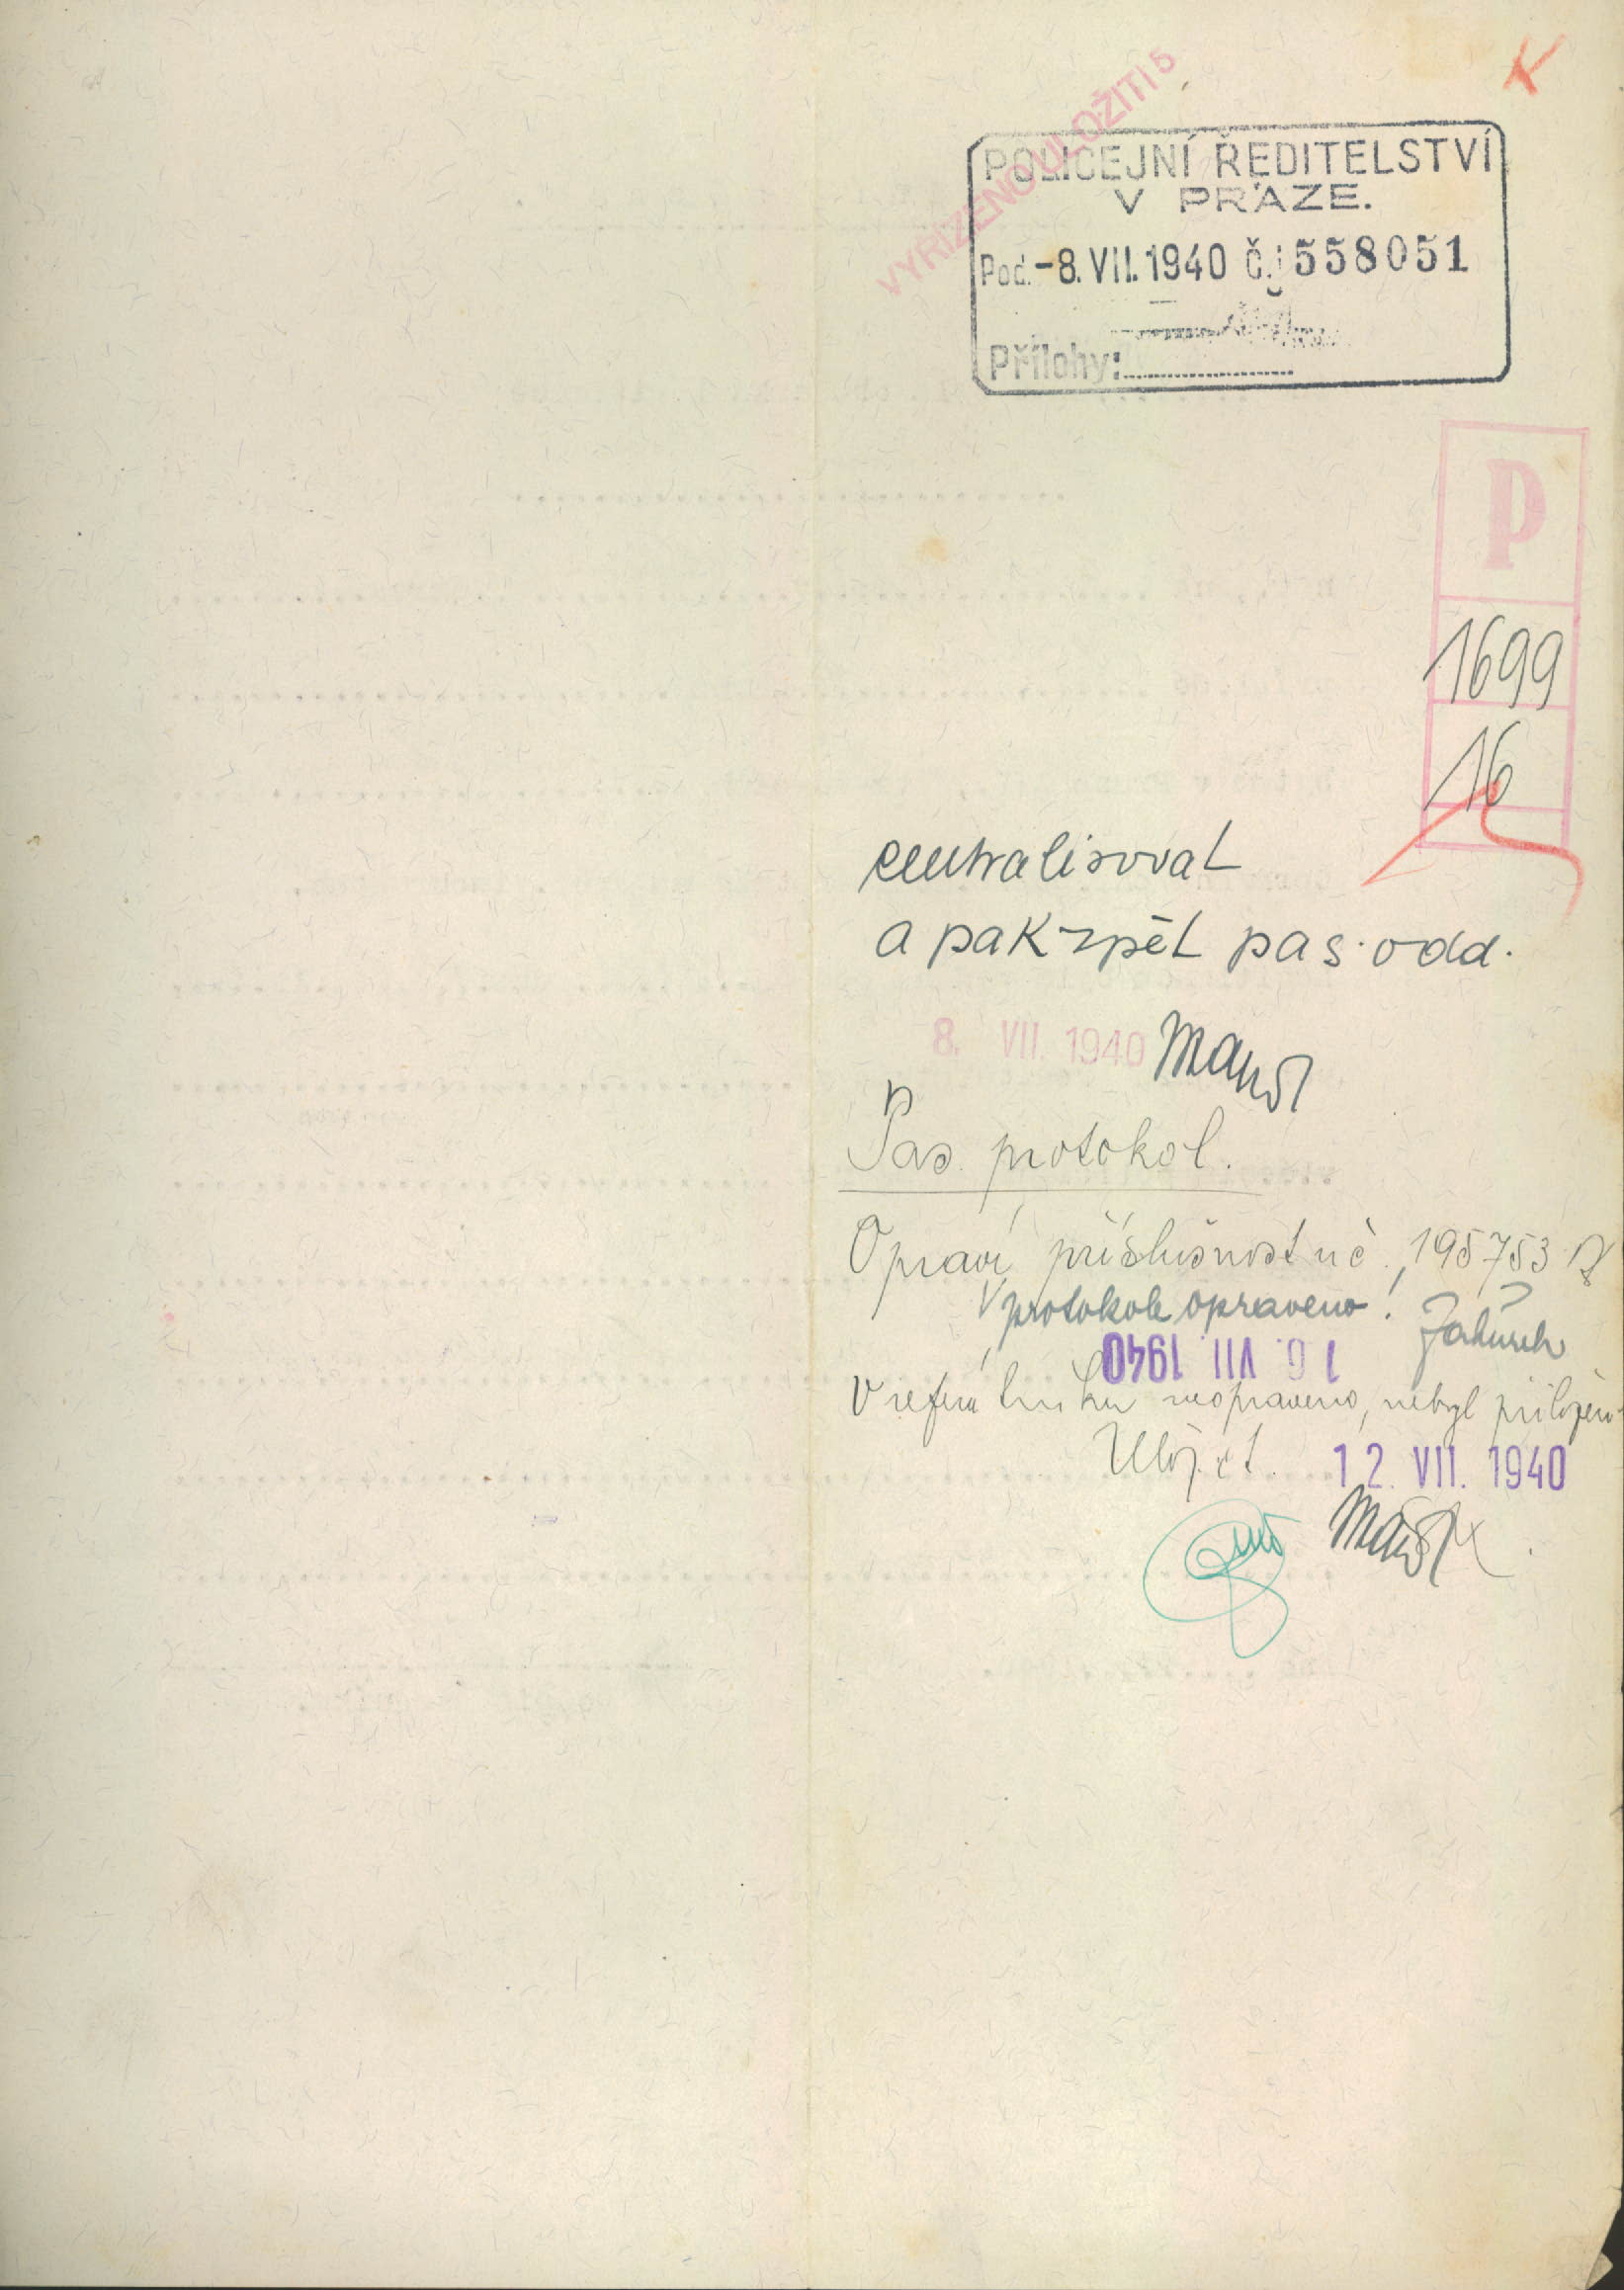 K
VYŘÍZENO ULOŽITI 5
POLICEJNÍ ŘEDITELSTVÍ
V PRAZE.
Pod. -8. VII. 1940 č.j. 558051
Přílohy:
P
1699
16
centralisovat
a pak zpět pas. odd.
8. VII. 1940
Pas. protokol.
Opraví příslušnost u č. 195753
V protokole opraveno!
10. VII 1940
V refer. neopraveno, nebyl přiložen
Uložit. 12. VII. 1940